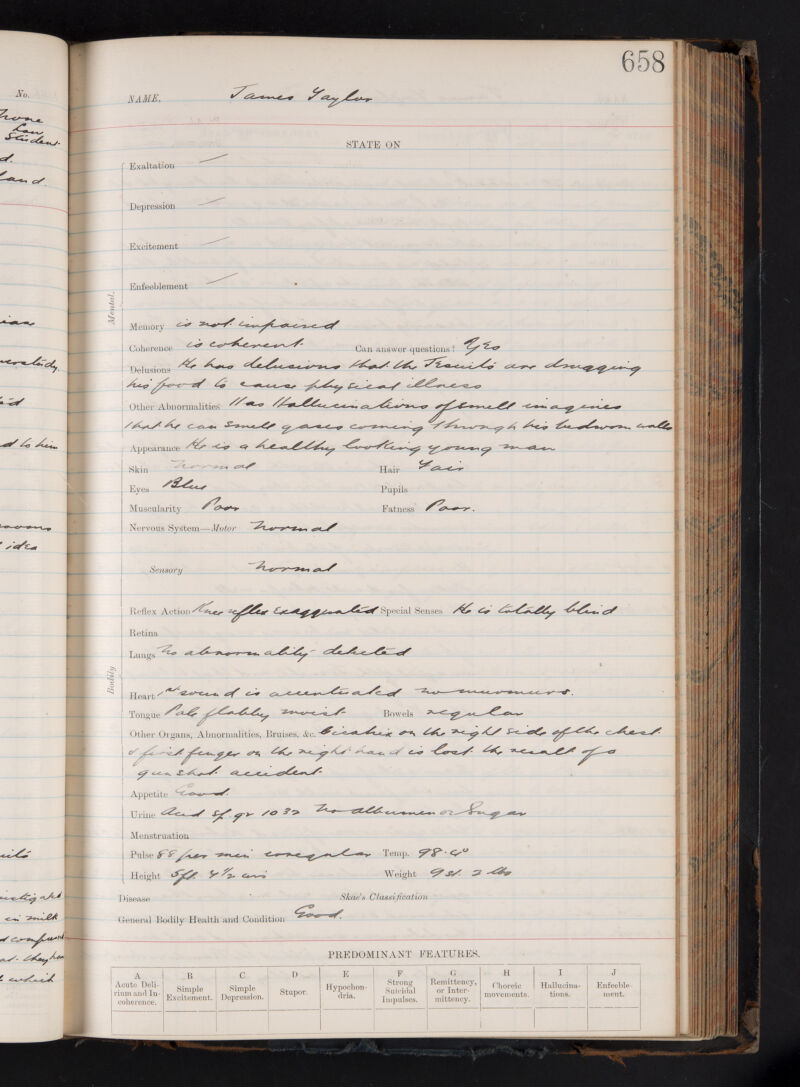 No.
Law
Student
658
NAME, James Taylor
STATE ON
Mental.
Exaltation —
Depression —
Excitement —
Enfeeblement —
Memory is not impaired
Coherence is coherent Can answer questions? Yes
Delusions He has delusions that the Jesuits are drugging
his food to cause physical illness
Other Abnormalities Has Hallucinations of smell imagines
that he can smell gases coming through his bedroom walls
Appearance He is a healthy looking young man
Skin normal Hair Fair
Eyes Blue Pupils
Muscularity Poor Fatness Poor.
Nervous System—Motor normal
Sensory normal
Bodily
Reflex Action Knee reflex exaggerated Special Senses He is totally blind
Retina
Lungs No abnormality detected
Heart 1st sound is accentuated no murmurs.
Tongue Pale flabby moist Bowels regular
Other Organs, Abnormalities, Bruises, &c. Cicatrix on the right side of the chest.
& first finger on the right hand is lost the result of a
gunshot accident.
Appetite Good.
Urine Acid sp. gr 1032 No albumen or Sugar
Menstruation
Pulse 88 per min irregular Temp. 98.4°
Height 5ft. 4½ ins Weight 9 st. 2 lbs
Disease Skae's Classification
General Bodily Health and Condition Good.
PREDOMINANT FEATURES.
A B C D E F G H I J
Acute Delirium and Incoherence. Simple Excitement. Simple Depression. Stupor. Hypochondria. Strong Suicidal Impulses. Remittency, or Intermittency. Choreic movements. Hallucinations. Enfeeblement.